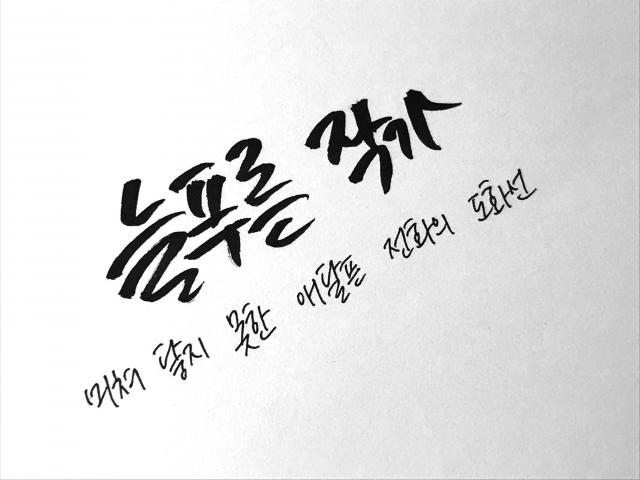 늘푸른 작가
미처 닿지 못한 애달픈 전화의 도화선